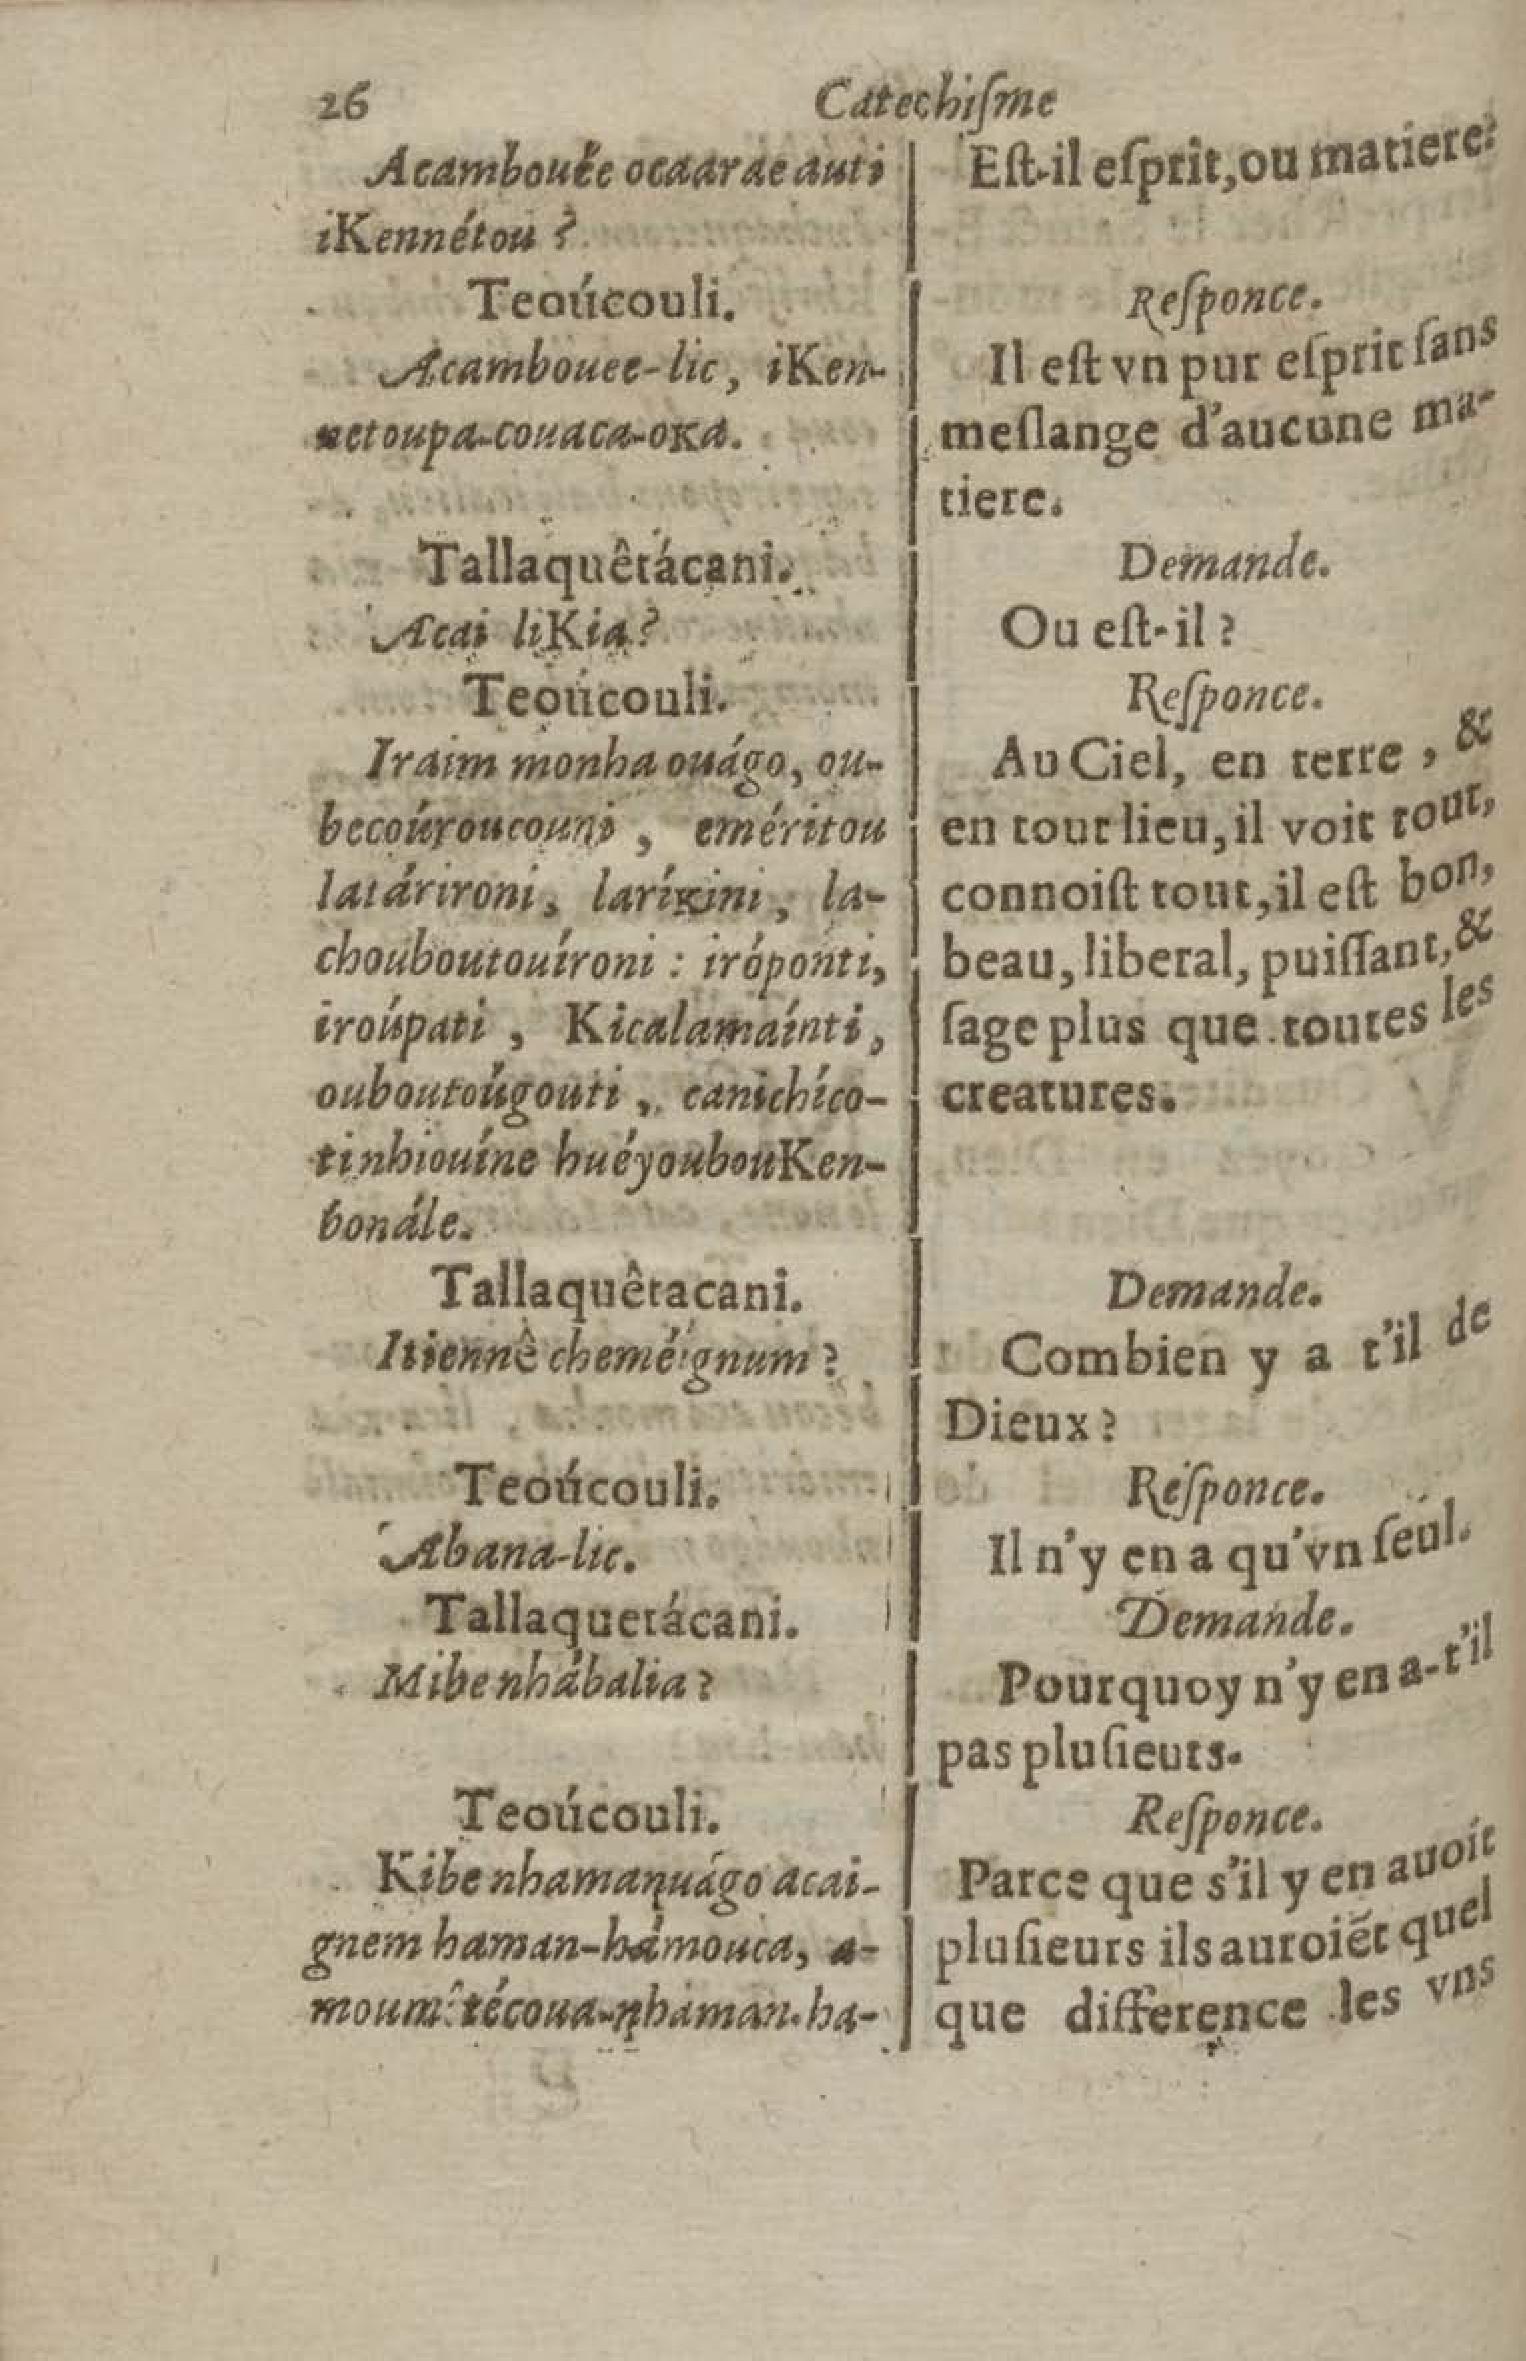 26
Catechiſme
Acambouëe ocaarae auti
iKennétou ?
Teoúcouli.
Acambouee-lic, iKen-
netoupa-couaca-oKa.
Tallaquêtácani.
Acai liKia?
Teoúcouli.
Iraim monha ouágo, ou-
becoúroucouni, eméritou
latárironi, laríKini, la-
chouboutouíroni : iróponti,
iroúpati, Kicalamaínti,
ouboutoúgouti, canichíco-
tinhiouíne huéyoubouKen-
bonále.
Tallaquêtacani.
Itiennê cheméignum ?
Teoúcouli.
Abana-lic.
Tallaquetácani.
Mibe nhábalia ?
Teoúcouli.
Kibe nhamanuágo acai-
gnem haman-hámouca, a-
moum técoua-nhaman-ha-
Eſt-il eſprit, ou matiere?
Reſponce.
Il eſt vn pur eſprit ſans
meſlange d'aucune ma-
tiere.
Demande.
Ou eſt-il ?
Reſponce.
Au Ciel, en terre, &
en tout lieu, il voit tout,
connoiſt tout, il eſt bon,
beau, liberal, puiſſant, &
ſage plus que toutes les
creatures.
Demande.
Combien y a t'il de
Dieux ?
Reſponce.
Il n'y en a qu'vn ſeul.
Demande.
Pourquoy n'y en a-t'il
pas pluſieurs.
Reſponce.
Parce que s'il y en auoit
pluſieurs ils auroiẽt quel
que difference les vns